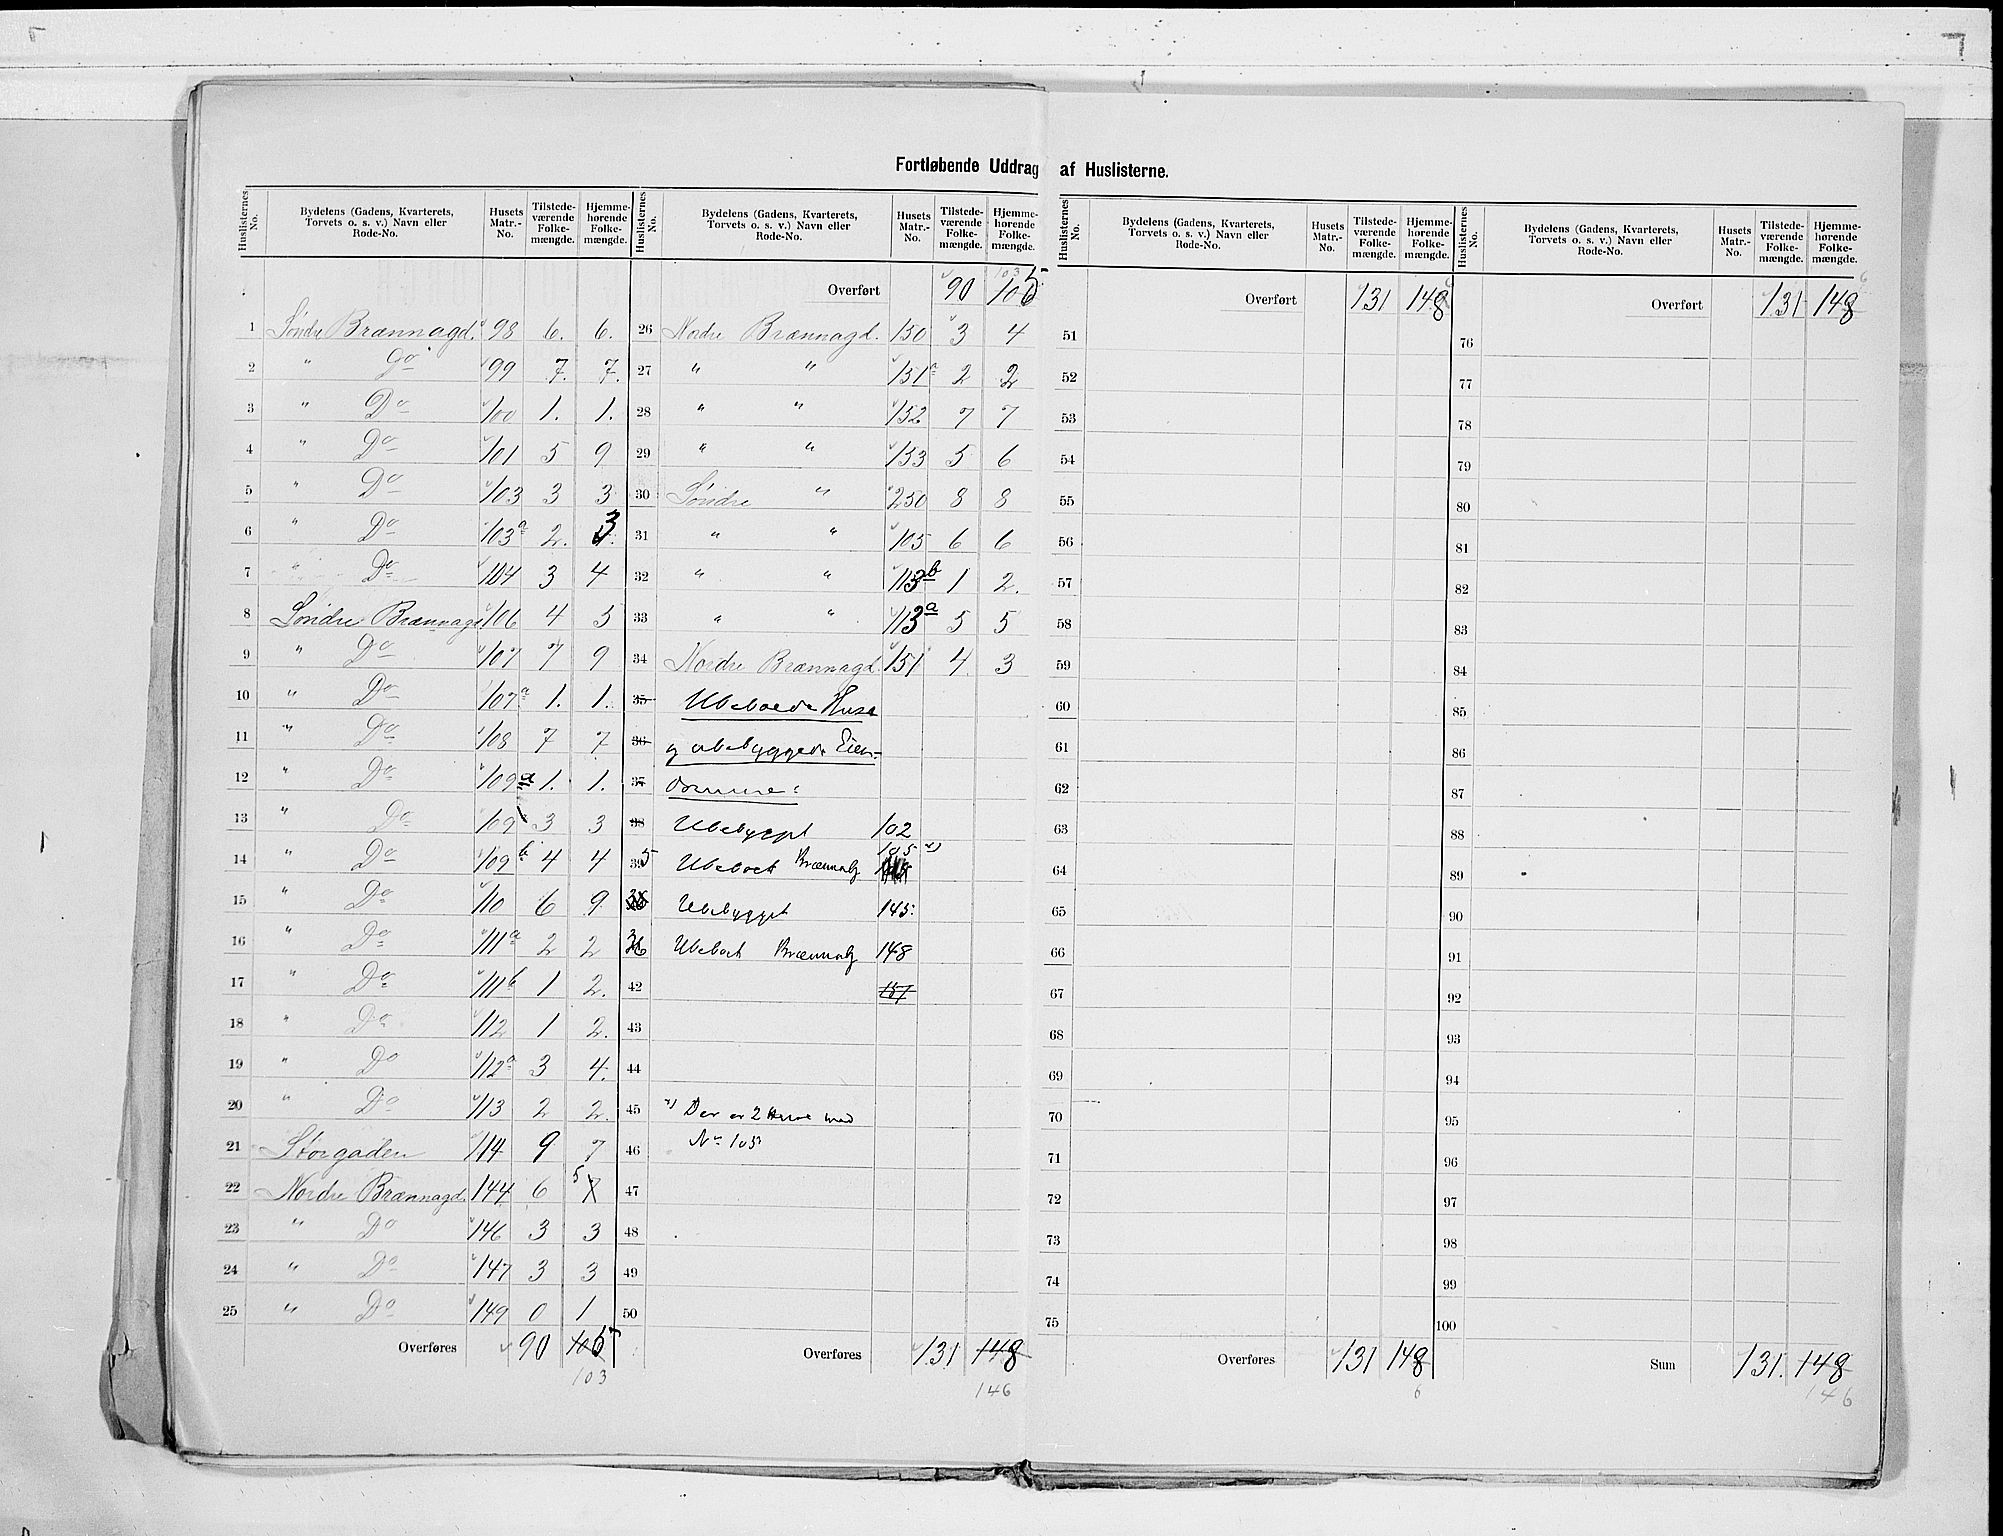 Fortløbende Uddrag af Huslisterne.
Huslisternes No. | Bydelens (Gadens, Kvarterets, Torvets o. s. v.) Navn eller Rode-No. | Husets Matr.-No. | Tilstede-værende Folke-mængde. | Hjemme-hørende Folke-mængde.
1 Søndre Brænnagd. 98 6. 6.
2 " Do 99 7. 7.
3 " Do 100 1. 1.
4 " Do 101 5 9
5 " Do 103 3 3
6 " Do 103a 2. 3
7 " Do 104 3 4
8 Søndre Brænnagd 106 4 5
9 " Do 107 7 9
10 " Do 107a 1. 1.
11 " Do 108 7 7
12 " Do 109a 1. 1.
13 " Do 109 3 3
14 " Do 109b 4 4
15 " Do 110 6 9
16 " Do 111a 2 2
17 " Do 111b 1 2.
18 " Do 112 1 2.
19 " Do 112a 3 4.
20 " Do 113 2 2.
21 Storgaden 114 9 7
22 Nordre Brænnagd. 144 6 5
23 " Do 146 3 3
24 " Do 147 3 3
25 " Do 149 0 1
Overføres 90 105
103
Huslisternes No. | Bydelens (Gadens, Kvarterets, Torvets o. s. v.) Navn eller Rode-No. | Husets Matr.-No. | Tilstede-værende Folke-mængde. | Hjemme-hørende Folke-mængde.
103
Overført 90 105
26 Nordre Brænnagd. 150 3 4
27 " " 151a 2 2
28 " " 152 7 7
29 " " 153 5 6
30 Søndre " 250 8 8
31 " " 105 6 6
32 " " 113b 1 2.
33 " " 113a 5 5
34 Nordre Brænnagd. 151 4 3
35 Ubeboede Huse
36 og ubebyggede Eien-
37 domme:
38 Ubebygget 102
39 5 Ubeboet Brænnag 105 x)
Ubebygget 145.
36 Ubeboet Brænnag 148
42 151
43
44
45 x) Der er 2 Huse med
46 No 105
47
48
49
50
Overføres 131 148
146
Huslisternes No. | Bydelens (Gadens, Kvarterets, Torvets o. s. v.) Navn eller Rode-No. | Husets Matr.-No. | Tilstede-værende Folke-mængde. | Hjemme-hørende Folke-mængde.
Overført 131 148
51
52
53
54
55
56
57
58
59
60
61
62
63
64
65
66
67
68
69
70
71
72
73
74
75
Overføres 131 148
6
Huslisternes No. | Bydelens (Gadens, Kvarterets, Torvets o. s. v.) Navn eller Rode-No. | Husets Matr.-No. | Tilstede-værende Folke-mængde. | Hjemme-hørende Folke-mængde.
6
Overført 131 148
76
77
78
79
80
81
82
83
84
85
86
87
88
89
90
91
92
93
94
95
96
97
98
99
100
Sum 131. 148
146